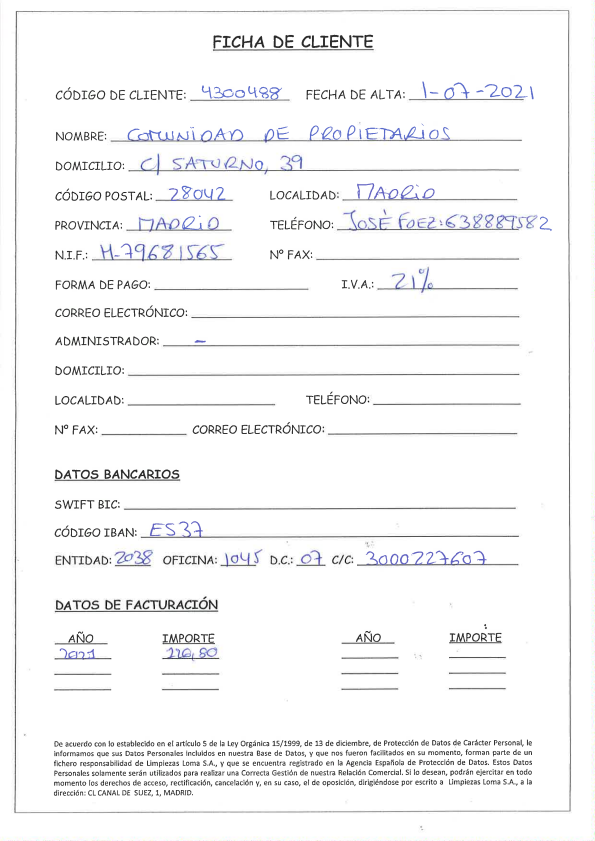 FICHA DE CLIENTE
CÓDIGO DE CLIENTE: 4300488 FECHA DE ALTA: 1-07-2021
NOMBRE: COMUNIDAD DE PROPIETARIOS
DOMICILIO: C/ SATURNO, 39
CÓDIGO POSTAL: 28042 LOCALIDAD: MADRID
PROVINCIA: MADRID TELÉFONO: JOSÉ FDEZ: 638889582
N.I.F.: H-79681565 Nº FAX:
FORMA DE PAGO: I.V.A.: 21%
CORREO ELECTRÓNICO:
ADMINISTRADOR: -
DOMICILIO:
LOCALIDAD: TELÉFONO:
Nº FAX: CORREO ELECTRÓNICO:
DATOS BANCARIOS
SWIFT BIC:
CÓDIGO IBAN: ES37
ENTIDAD: 2038 OFICINA: 1045 D.C.: 07 C/C: 3000227607
DATOS DE FACTURACIÓN
AÑO IMPORTE AÑO IMPORTE
2021 226,80
De acuerdo con lo establecido en el artículo 5 de la Ley Orgánica 15/1999, de 13 de diciembre, de Protección de Datos de Carácter Personal, le
informamos que sus Datos Personales incluidos en nuestra Base de Datos, y que nos fueron facilitados en su momento, forman parte de un
fichero responsabilidad de Limpiezas Loma S.A., y que se encuentra registrado en la Agencia Española de Protección de Datos. Estos Datos
Personales solamente serán utilizados para realizar una Correcta Gestión de nuestra Relación Comercial. Si lo desean, podrán ejercitar en todo
momento los derechos de acceso, rectificación, cancelación y, en su caso, el de oposición, dirigiéndose por escrito a Limpiezas Loma S.A., a la
dirección: CL CANAL DE SUEZ, 1, MADRID.